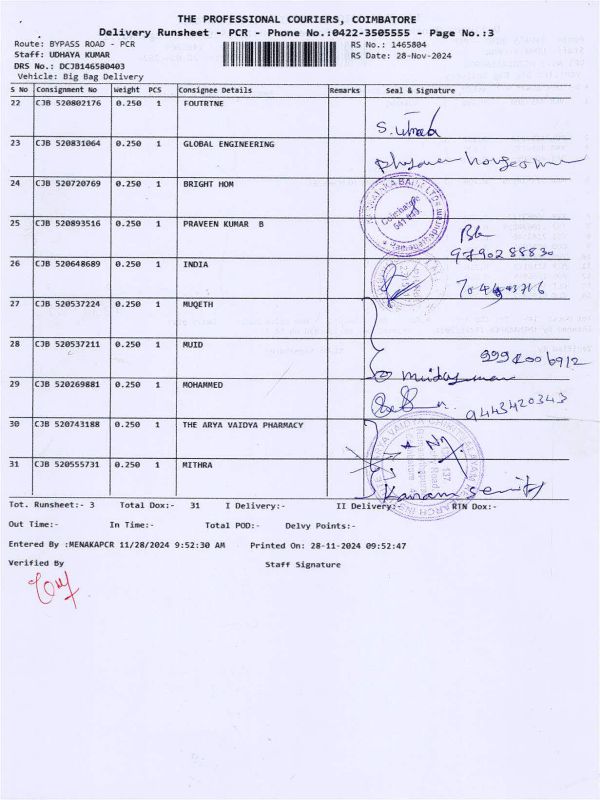 THE PROFESSIONAL COURIERS, COIMBATORE
Delivery Runsheet - PCR - Phone No.:0422-3505555 - Page No.:3
Route: BYPASS ROAD - PCR
RS No.: 1465804
Staff: UDHAYA KUMAR
RS Date: 28-Nov-2024
DRS No.: DCJB146580403
Vehicle: Big Bag Delivery
S No Consignment No Weight PCS Consignee Details Remarks Seal & Signature
22 CJB 520802176 0.250 1 FOUTRTNE
23 CJB 520831064 0.250 1 GLOBAL ENGINEERING
24 CJB 520720769 0.250 1 BRIGHT HOM
25 CJB 520893516 0.250 1 PRAVEEN KUMAR B
9790288830
26 CJB 520648689 0.250 1 INDIA
27 CJB 520537224 0.250 1 MUQETH
28 CJB 520537211 0.250 1 MUID
29 CJB 520269881 0.250 1 MOHAMMED
9443420343
30 CJB 520743188 0.250 1 THE ARYA VAIDYA PHARMACY
31 CJB 520555731 0.250 1 MITHRA
Tot. Runsheet:- 3 Total Dox:- 31 I Delivery:- II Delivery:- RIN Dox:-
Out Time:- In Time:- Total POD:- Delvy Points:-
Entered By :MENAKAPCR 11/28/2024 9:52:30 AM Printed On: 28-11-2024 09:52:47
Verified By Staff Signature